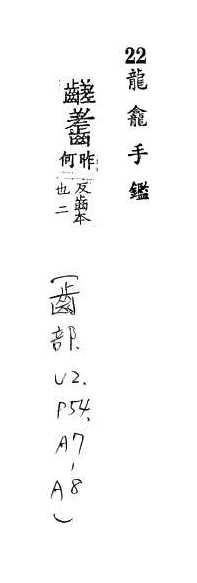 22 龍龕手鑑
齹𪘓昨何反齒本也二
(齒部. V2. P54. A7-A8)